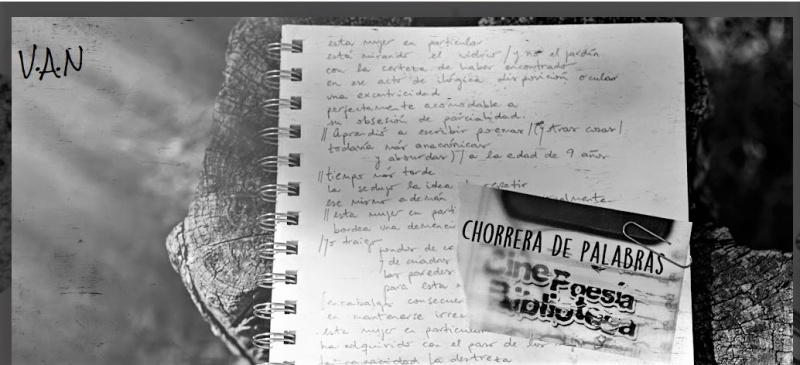 V.A.N
esta mujer en particular
está mirando el vidrio / y no el jardín
con la certeza de haber encontrado
en ese acto de ilógica disposición ocular
una excentricidad
perfectamente acomodable a
su obsesión de parcialidad.
// Aprendió a escribir poemas / (y otras cosas /
todavía más anacrónicas
y absurdas) / a la edad de 9 años
// tiempo más tarde
la sedujo la idea repetir
ese mismo ademán
// esta mujer en part
bordea una demenci
/ yo traigo
de cuadros
las paredes
para esta
[encabalga consecuen
en mantenerse irre
esta mujer en particular
ha adquirido con el paso de los
la capacidad la destreza
CHORRERA DE PALABRAS
Cine Poesía
Biblioteca